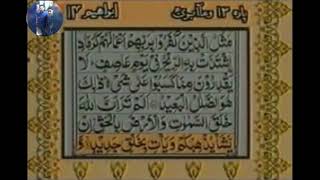 پاره ۱۳ وماابرئ ابراهيم ۱۴
مَثَلُ الَّذِينَ كَفَرُوا بِرَبِّهِمْ أَعْمَالُهُمْ كَرَمَادِ
اشْتَدَّتْ بِهِ الرِّيحُ فِي يَوْمٍ عَاصِفٍ لَا
يَقْدِرُونَ مِمَّا كَسَبُوا عَلَىٰ شَيْءٍ ذَٰلِكَ
هُوَ الضَّلٰلُ الْبَعِيدُ أَلَمْ تَرَ أَنَّ اللَّهَ
خَلَقَ السَّمٰوٰتِ وَالْأَرْضَ بِالْحَقِّ إِنْ
يَشَأْ يُذْهِبْكُمْ وَيَأْتِ بِخَلْقٍ جَدِيدٍ وَّ